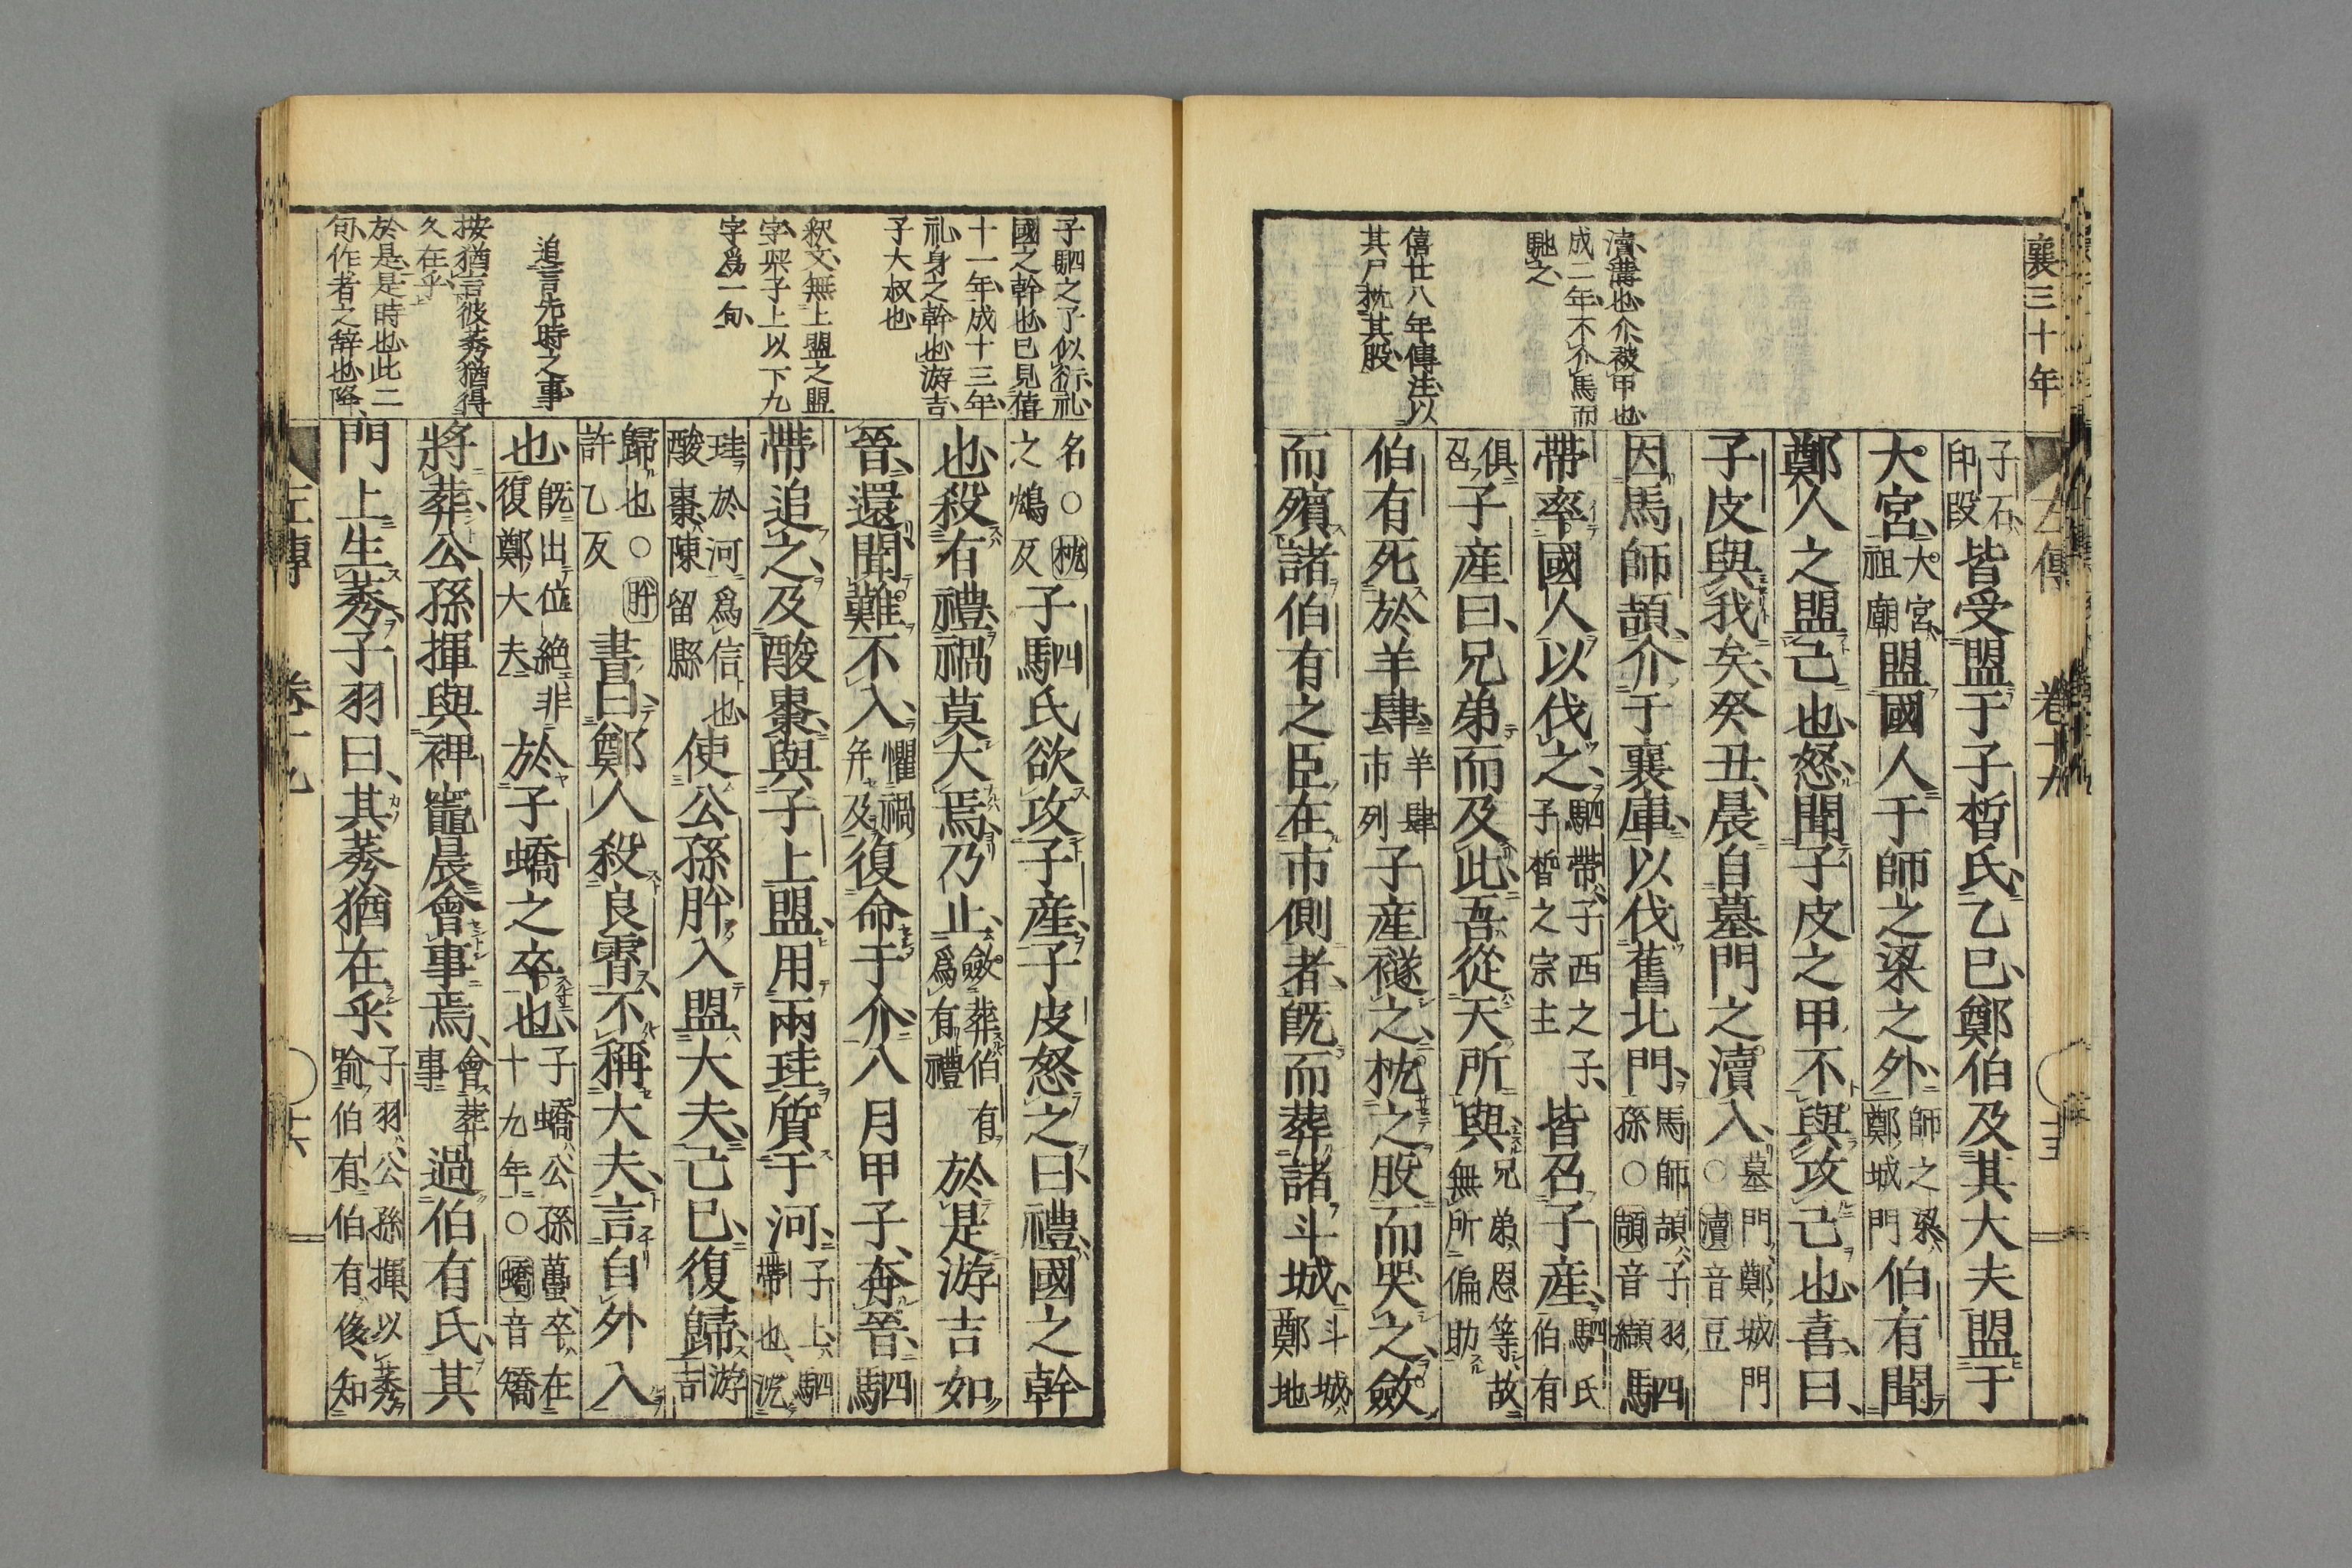 襄三十年
左傳　卷十九　十五
瀆溝也介被甲也
成二年不介馬而
馳之
僖廿八年傳注以
其尸枕其股
子石印段皆受盟于子晳氏乙巳鄭伯及其大夫盟于
大宮大宮祖廟盟國人于師之梁之外師之梁鄭城門伯有聞
鄭人之盟己也怒聞子皮之甲不與攻己也喜曰
子皮與我矣癸丑晨自墓門之瀆入墓門鄭城門○瀆音豆
因馬師頡介于襄庫以伐舊北門馬師頡子羽孫○頡音纈駟
帶率國人以伐之駟帶子西之子子晳之宗主皆召子產駟氏伯有
俱召子產曰兄弟而及此吾從天所與兄弟恩等故無所偏助
伯有死於羊肆羊肆市列子產襚之枕之股而哭之斂
而殯諸伯有之臣在市側者既而葬諸斗城斗城鄭地
子駟之子似衍礼
國之幹也已見僖
十一年成十三年
礼身之幹也游吉
子大叔也
釈文無上盟之盟
字與子上以下九
字爲一句
追言先時之事
按猶言彼莠猶得
久在乎
於是是時也此二
句作者之辞也降
名○枕之鴆反子駟氏欲攻子產子皮怒之曰禮國之幹
也殺有禮禍莫大焉乃止斂葬伯有爲有禮於是游吉如
晉還聞難不入懼禍并及復命于介八月甲子奔晉駟
帶追之及酸棗與子上盟用兩珪質于河子上駟帶也沈
珪於河爲信也酸棗陳留縣使公孫肸入盟大夫己巳復歸游吉
歸也○肸許乙反書曰鄭人殺良霄不稱大夫言自外入
也既出位絕非復鄭大夫於子蟜之卒也子蟜公孫蠆卒在十九年○蟜音矯
將葬公孫揮與裨竈晨會事焉會葬事過伯有氏其
門上生莠子羽曰其莠猶在乎子羽公孫揮以莠喩伯有伯有侈知
左傳　卷十九　十六